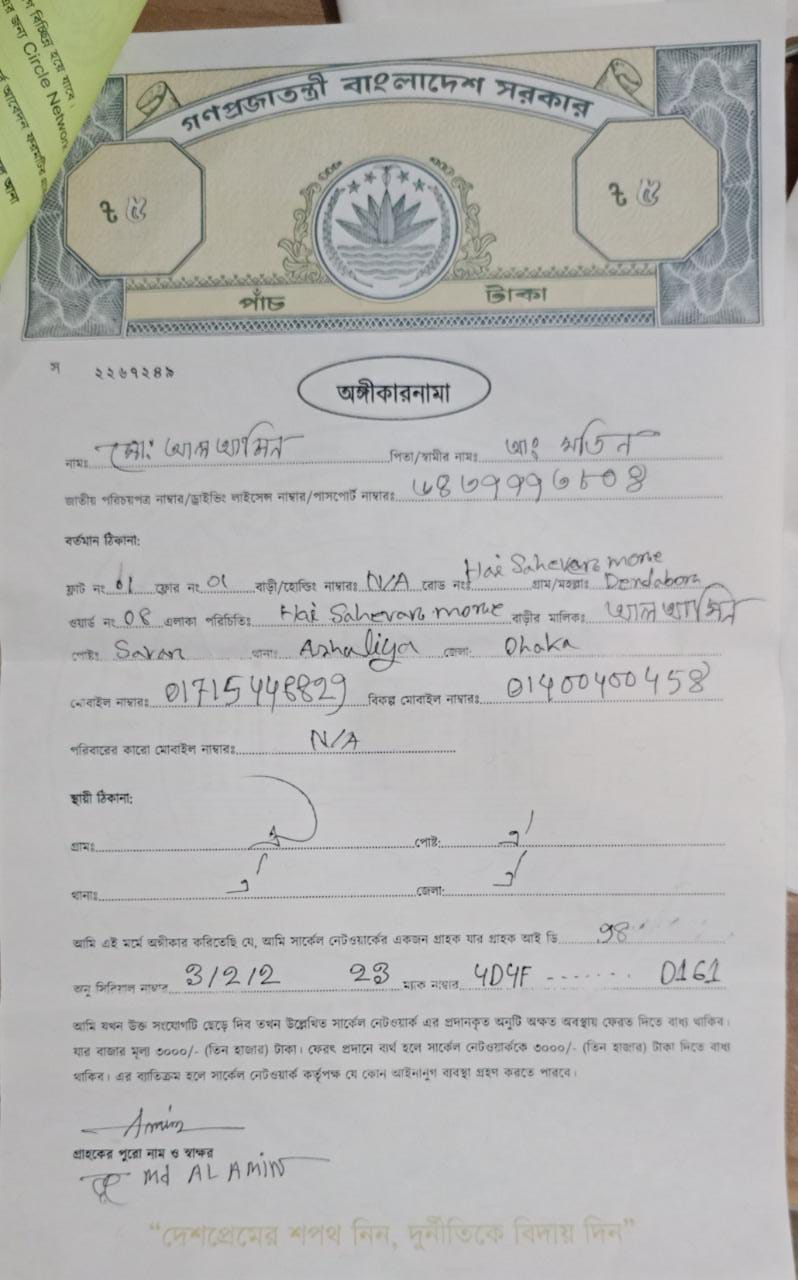 ণ বিচ্ছিন্ন হয়ে যাবে।
র জন্য Circle Network
আবেদন ফরমটির
গণপ্রজাতন্ত্রী বাংলাদেশ সরকার
৳ ৫ ৳ ৫
পাঁচ টাকা
স ২২৬৭২৪৯
অঙ্গীকারনামা
নামঃ মো: আল আমিন পিতা/স্বামীর নামঃ আঃ মতিন
জাতীয় পরিচয়পত্র নাম্বার/ড্রাইভিং লাইসেন্স নাম্বার/পাসপোর্ট নাম্বারঃ
বর্তমান ঠিকানা:
ফ্লাট নং 01 ফ্লোর নং 01 বাড়ী/হোল্ডিং নাম্বারঃ N/A রোড নংঃ Hai Sahevar more গ্রাম/মহল্লাঃ Dendabor
ওয়ার্ড নং 08 এলাকা পরিচিতিঃ Hai Sahevar more বাড়ীর মালিকঃ আল আমিন
পোষ্টঃ Savar থানাঃ Ashaliya জেলা: Dhaka
মোবাইল নাম্বারঃ 01715446829 বিকল্প মোবাইল নাম্বারঃ 01400400458
পরিবারের কারো মোবাইল নাম্বারঃ N/A
স্থায়ী ঠিকানা:
গ্রামঃ পোষ্ট:
থানাঃ জেলা:
আমি এই মর্মে অঙ্গীকার করিতেছি যে, আমি সার্কেল নেটওয়ার্কের একজন গ্রাহক যার গ্রাহক আই ডি 98
অনু সিরিয়াল নাম্বার 3/2/2 23 ম্যাক নাম্বার 4D4F ------- D161
আমি যখন উক্ত সংযোগটি ছেড়ে দিব তখন উল্লেখিত সার্কেল নেটওয়ার্ক এর প্রদানকৃত অনুটি অক্ষত অবস্থায় ফেরত দিতে বাধ্য থাকিব।
যার বাজার মূল্য ৩০০০/- (তিন হাজার) টাকা। ফেরৎ প্রদানে ব্যর্থ হলে সার্কেল নেটওয়ার্ককে ৩০০০/- (তিন হাজার) টাকা দিতে বাধ্য
থাকিব। এর ব্যতিক্রম হলে সার্কেল নেটওয়ার্ক কর্তৃপক্ষ যে কোন আইনানুগ ব্যবস্থা গ্রহণ করতে পারবে।
Amin
গ্রাহকের পুরো নাম ও স্বাক্ষর
Md AL AMIN
"দেশপ্রেমের শপথ নিন, দুর্নীতিকে বিদায় দিন"